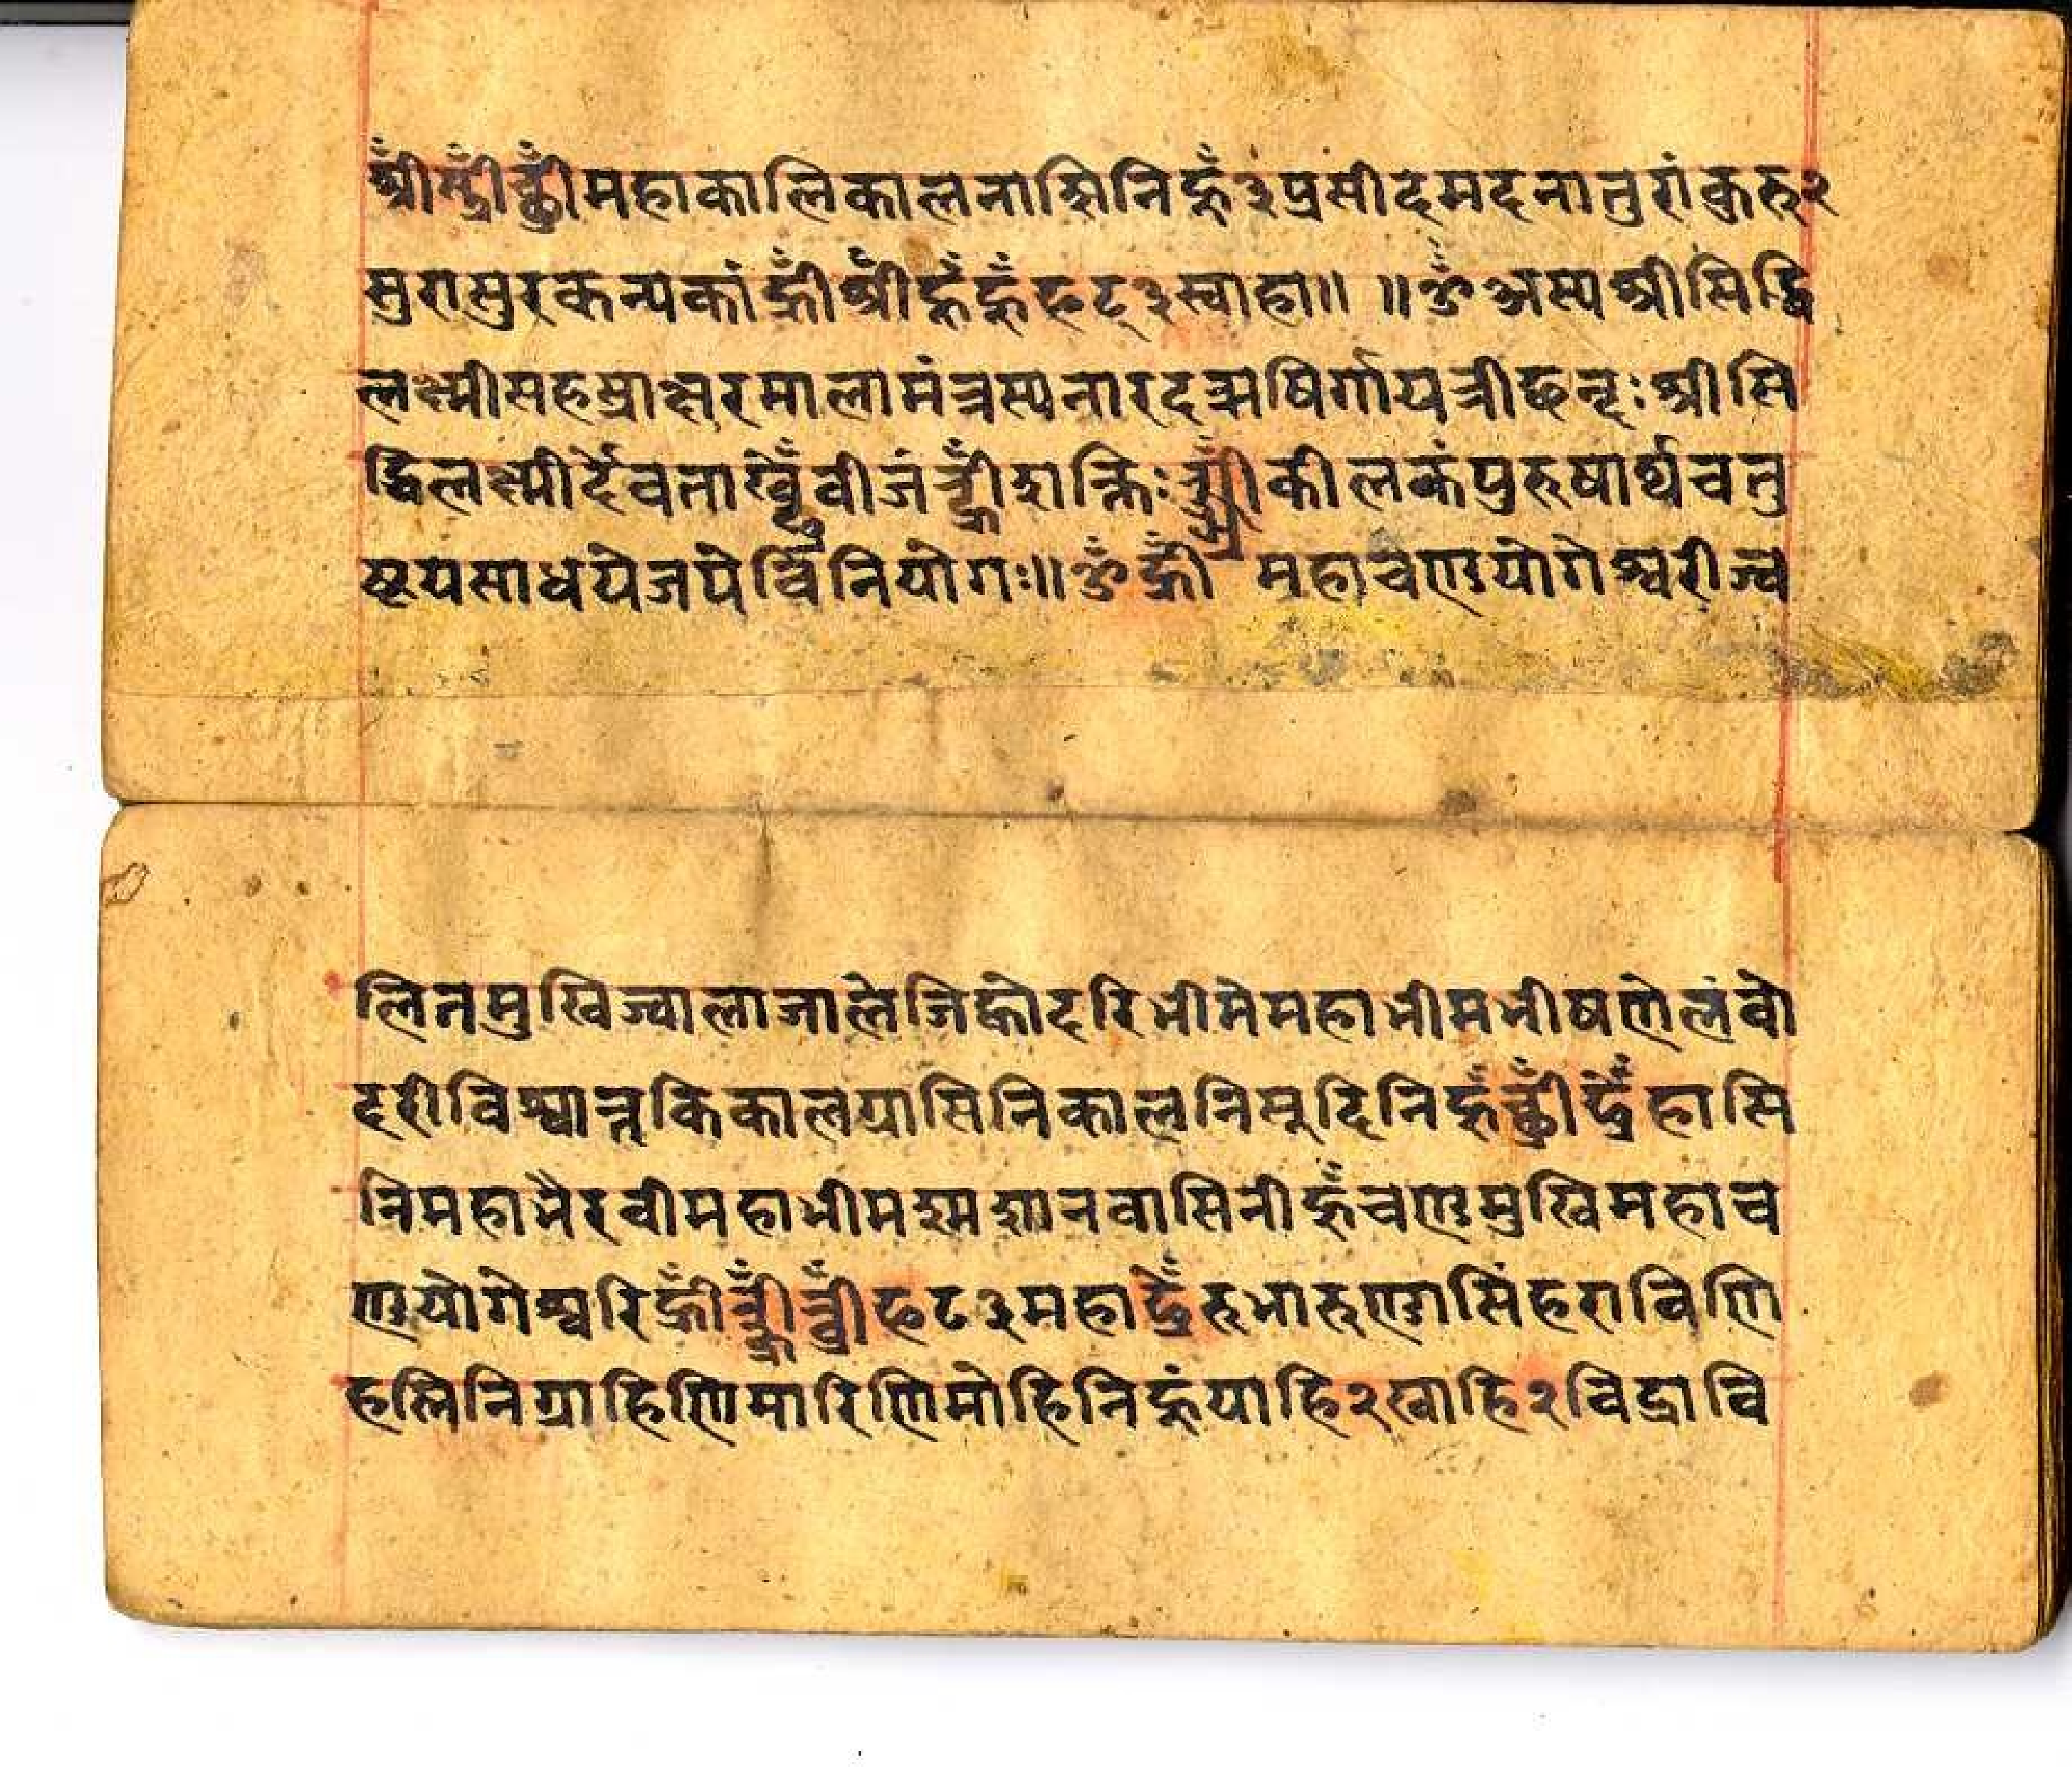 श्रीँ म्रीँ छ्रीँ महाकालि कालनाशिनि ह्रूँ ३ प्रसीद मदनातुरां कुरु २
सुरासुरकन्यकां ह्रीँ श्रीँ ह्रूँ ह्रूँ फट् ३ स्वाहा॥ ॥ ॐ अस्य श्रीसिद्धि
लक्ष्मीसहस्राक्षरमालामंत्रस्य नारद ऋषिर्गायत्री छन्दः श्रीसि
द्धिलक्ष्मीर्देवता वीजं शक्तिः कीलकं पुरुषार्थचतु
ष्टयसाधये जपे विनियोगः॥ ॐ ह्रीँ महाचण्डयोगेश्वरी ज्व
लितमुखि ज्वालाजाले जिह्वोदरि भीमे महाभीमभीषणे लंवो
दरी विश्वान्तकि कालग्रासिनि कालनिसूदिनि ह्रूँ छ्रीँ हासि
नि महाभैरवी महाभीमश्मशानवासिनी ह्रूँ चण्डमुखि महाच
ण्डयोगेश्वरि ह्रीँ फट ३ महा रुभारुण्डासिंहराविणि
हलिनि ग्राहिणि मारिणि मोहिनि ह्रूं याहि २ खाहि २ विद्रावि